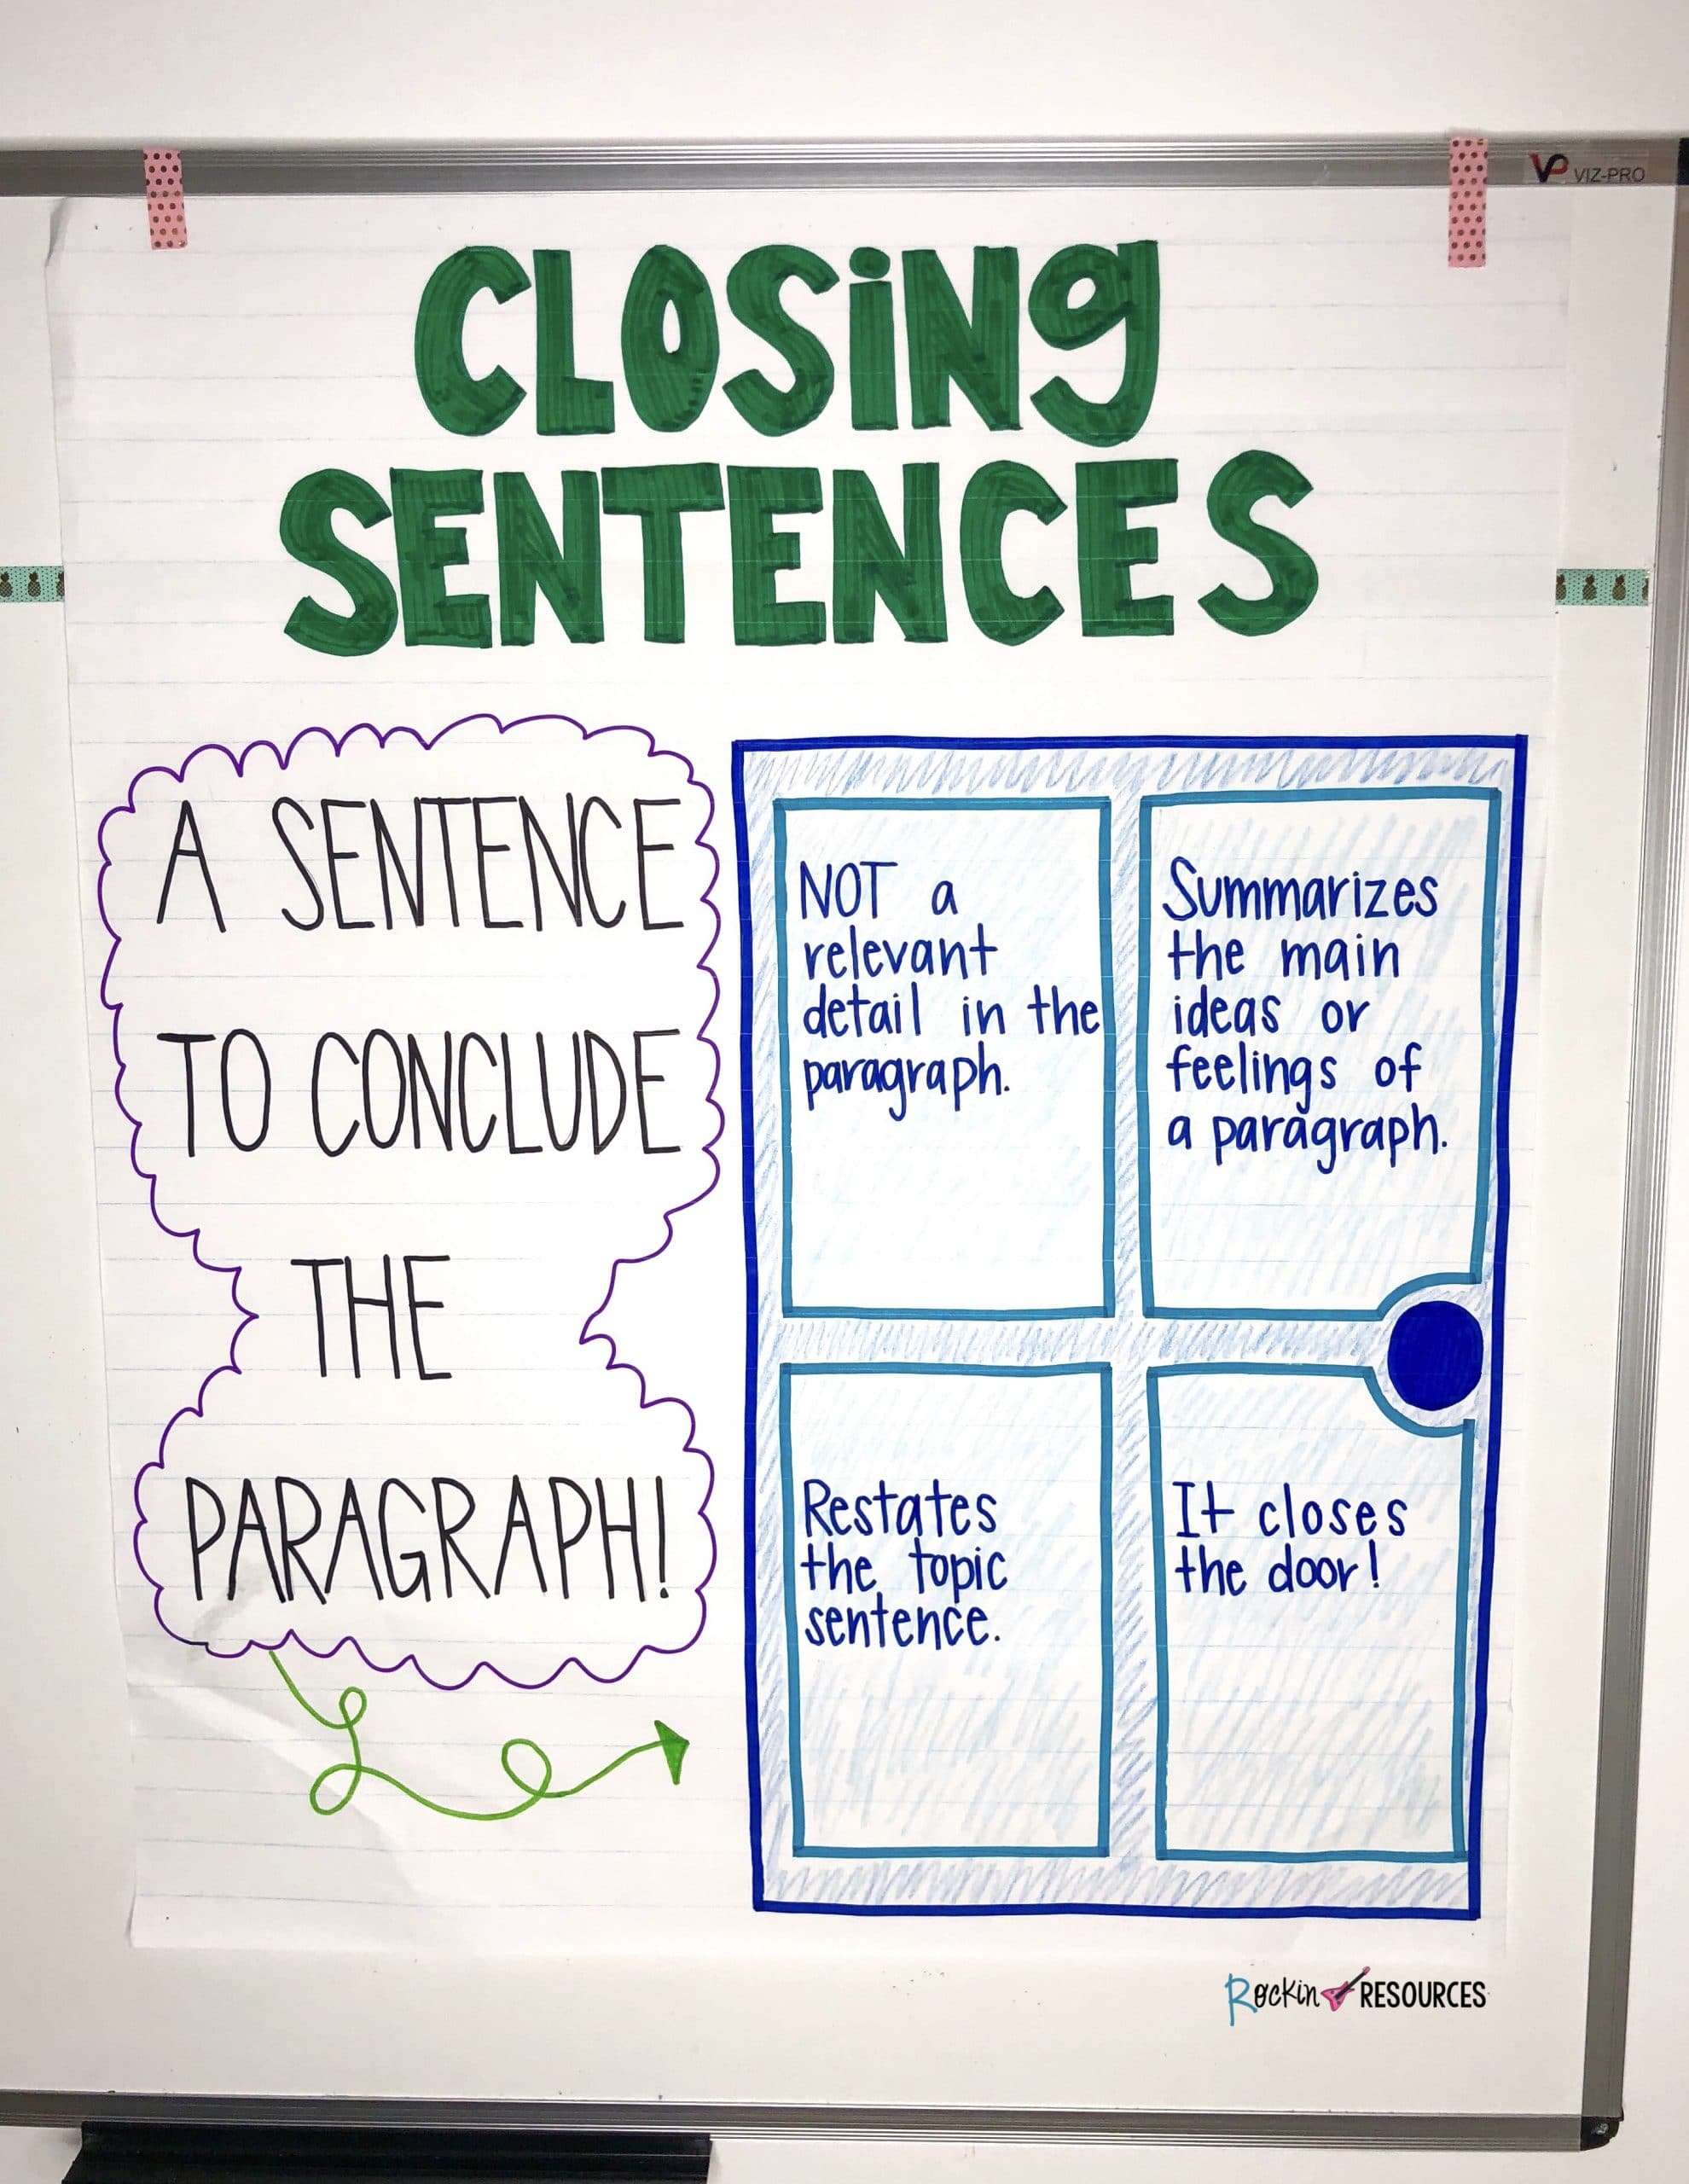 VP VIZ-PRO
CLOSiNg
SENTENCES
A SENTENCE
TO CONCLUDE
THE
PARAGRAPH!
NOT a
relevant
detail in the
paragraph.
Summarizes
the main
ideas or
feelings of
a paragraph.
Restates
the topic
sentence.
It closes
the door!
Rockin RESOURCES